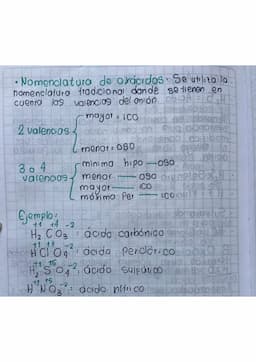 • Nomenclatura de oxácidos • Se utiliza la
nomenclatura tradicional donde se tienen en
cuenta las valencias del anión.
2 valencias
mayor = ico
menor = oso
3 o 4
valencias
mínima hipo — oso
menor — oso
mayor — ico
máximo Per — ico
Ejemplo:
+1 +4 -2
H₂ C O₃ : ácido carbónico
+1 -2
H Cl O₄ : ácido perclórico
+1 -2
H₂ S O₄ : ácido sulfúrico
+1 +5 -2
H N O₃ : ácido nítrico